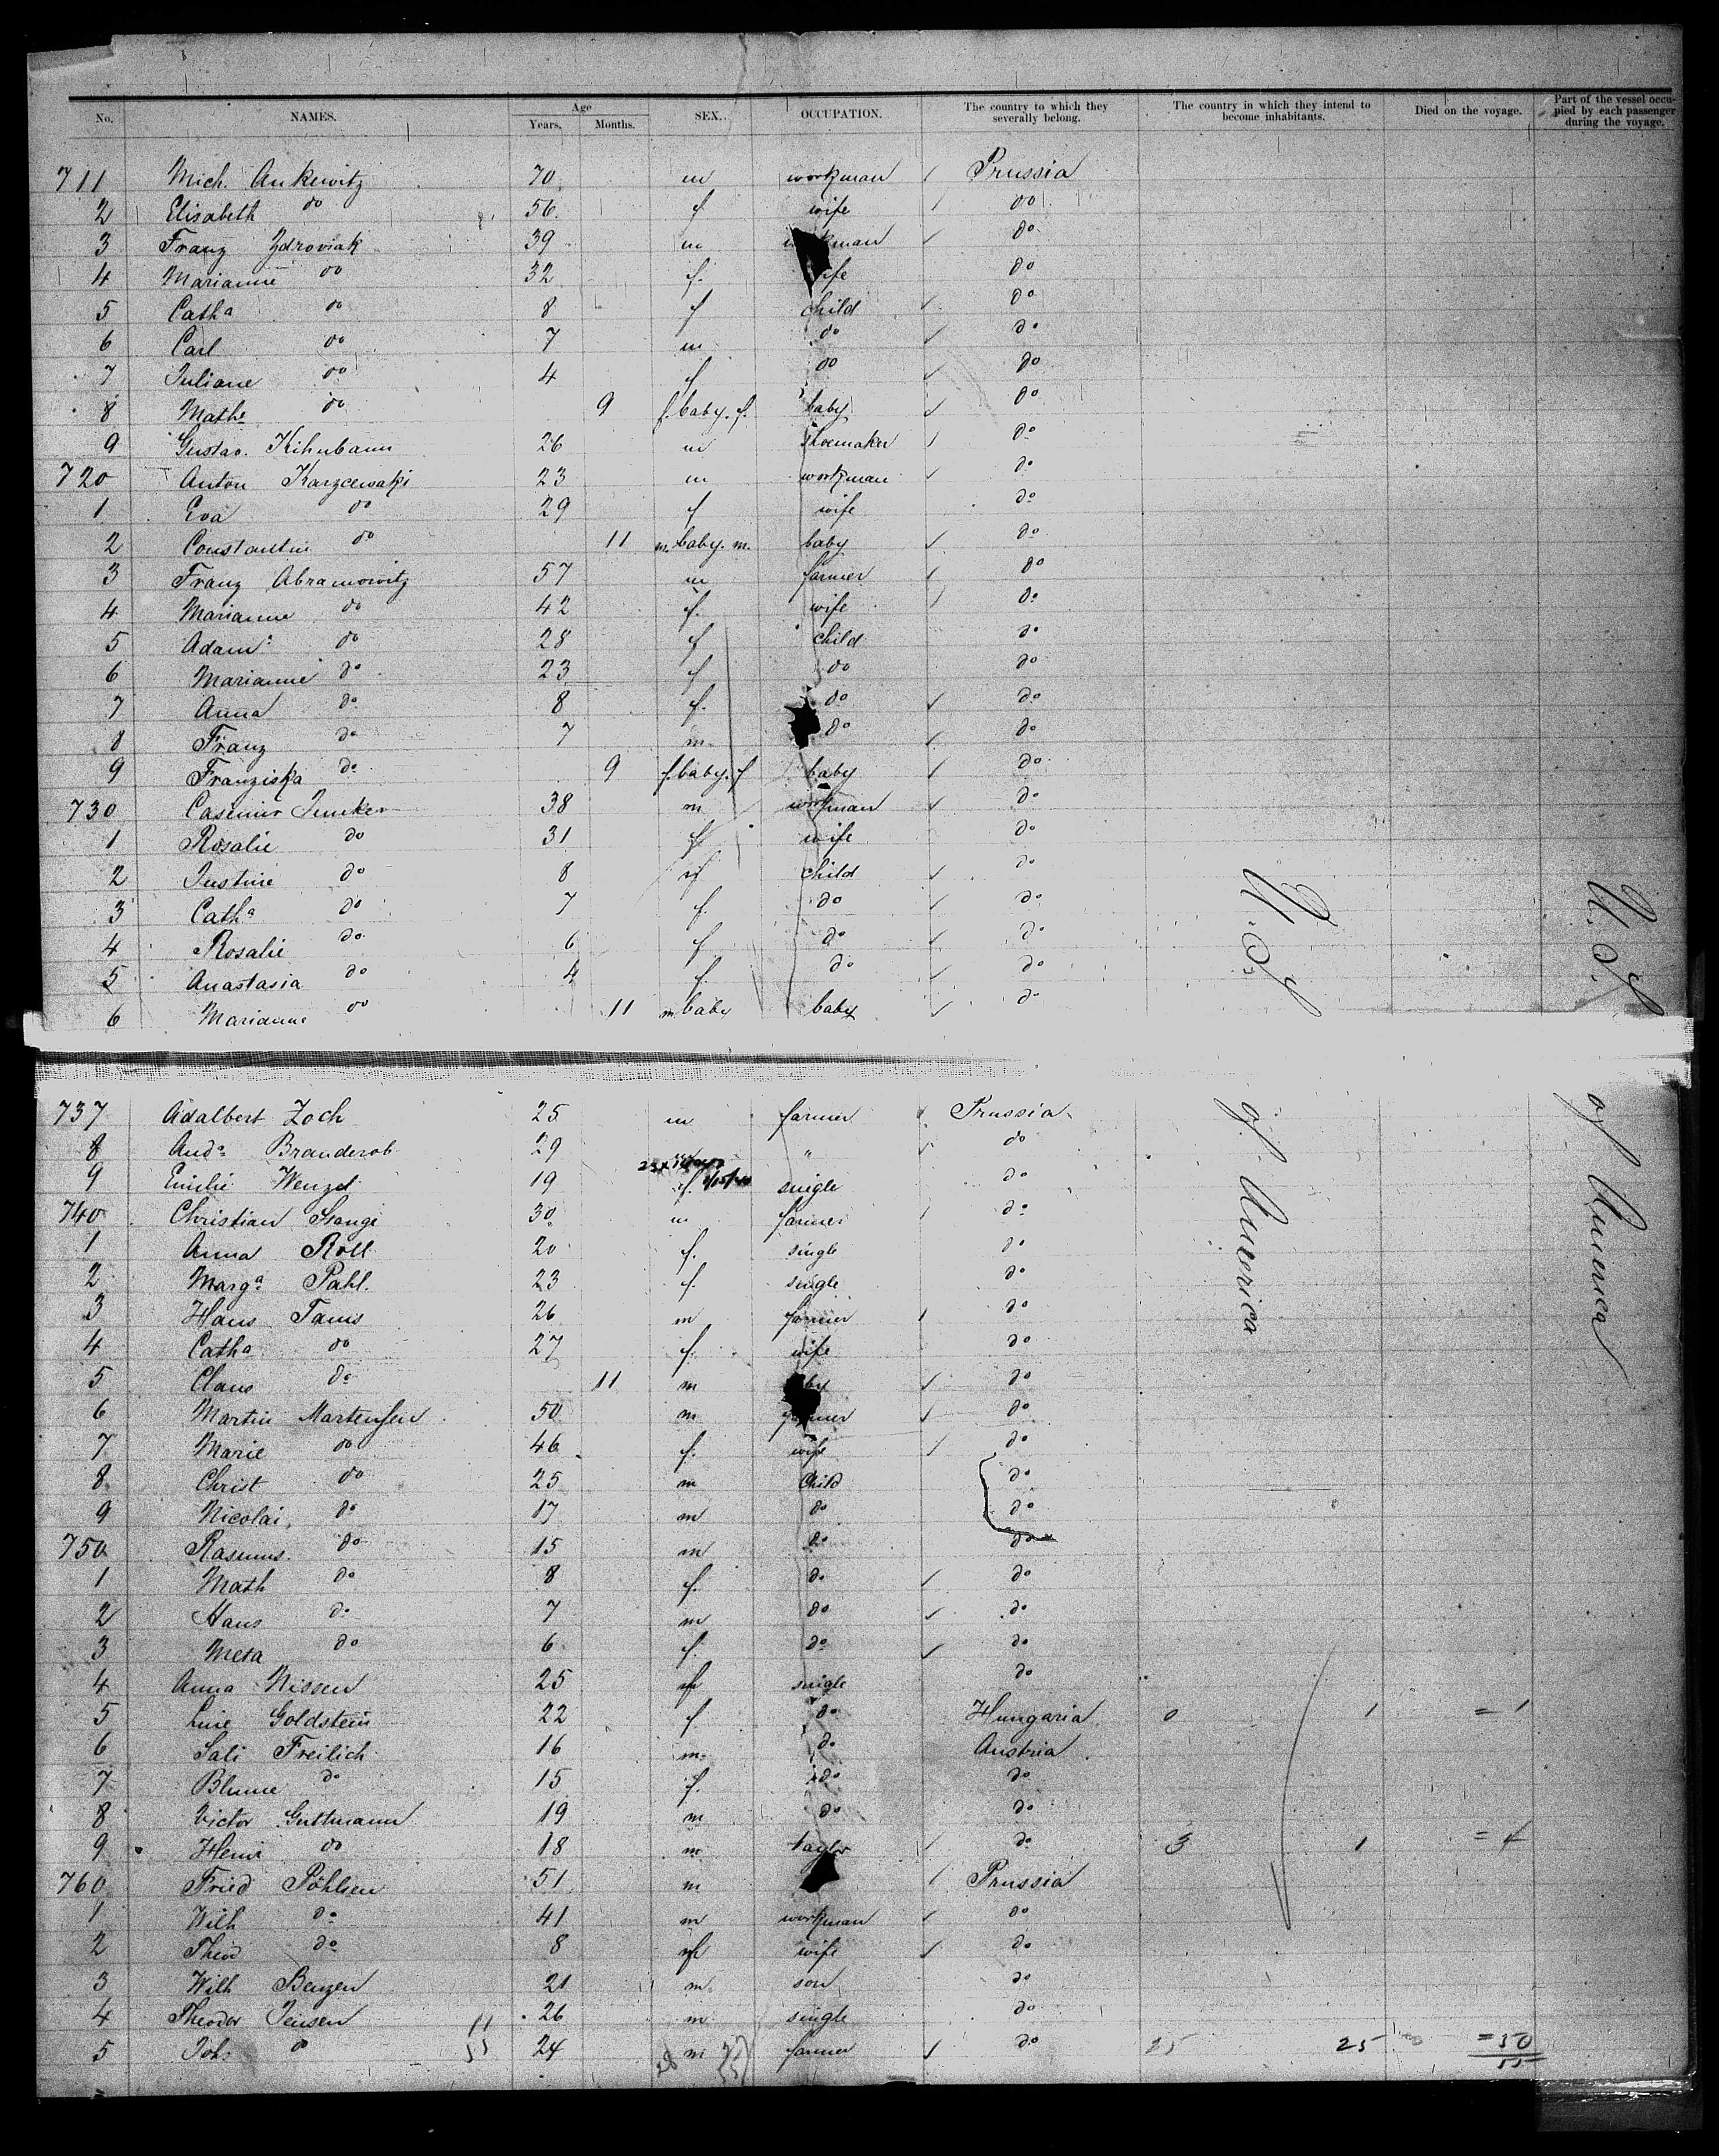 No. NAMES. Age Years. Months. SEX. OCCUPATION. The country to which they severally belong. The country in which they intend to become inhabitants. Died on the voyage. Part of the vessel occupied by each passenger during the voyage.
711 Mich. Ankewitz 70 m workman Prussia
2 Elisabeth do 56 f wife do
3 Franz Zdroviak 39 m workman do
4 Marianne do 32 f. wife do
5 Catha do 8 f child do
6 Carl do 7 m do do
7 Juliane do 4 f do do
8 Mathe do 9 f. baby. f. baby do
9 Gustav. 26 m shoemaker do
720 Anton Karzcewski 23 m workman do
1 Eva do 29 f wife do
2 Constantin do 11 m. baby. m. baby do
3 Franz Abramowitz 57 m farmer do
4 Marianne do 42 f. wife do
5 Adam do 28 f child do
6 Marianne do 23 f do do
7 Anna do 8 f. do do
8 Franz do 7 m do do
9 Franziska do 9 f. baby. f baby do
730 Casimir Junker 38 m workman do
1 Rosalie do 31 f wife do
2 Justine do 8 f child do
3 Catha do 7 f. do do
4 Rosalie do 6 f do do
5 Anastasia do 4 f. do do
6 Marianne do 11 m baby baby do
U. S. U. S.
737 Adalbert Zoch 25 m farmer Prussia
8 Andr. Branderob 29 " do
9 Emilie Wenzel 19 f. single do
740 Christian Stange 30 m farmer do
1 Anna Roll 20 f. single do
2 Marga Pahl. 23 f. single do
3 Hans Tams 26 m farmer do
4 Catha do 27 f. wife do
5 Claus do 11 m by do
6 Martin Martensen 50 m farmer do
7 Marie do 46 f. wife do
8 Christ do 25 m child do
9 Nicolai do 17 m do do
750 Rasmus. do 15 m do do
1 Math do 8 f. do do
2 Hans do 7 m do do
3 Meta do 6 f. do do
4 Anna Nissen 25 f single do
5 Line Goldstein 22 f do Hungaria 0 1 = 1
6 Sali Freilich 16 m. do Austria
7 Blume do 15 f. do do
8 Victor Guttmann 19 m do do
9 Henri do 18 m taylor do 3 1 = 4
760 Fried Pohlsen 51 m Prussia
1 Wilh do 41 m workman do
2 Theod do 8 wife do
3 Wilh Benzen 21 m. son do
4 Theodor Jensen 26 m single do
5 Joh. do 24 m farmer do 25 25 = 50
of America of America
11
55
55